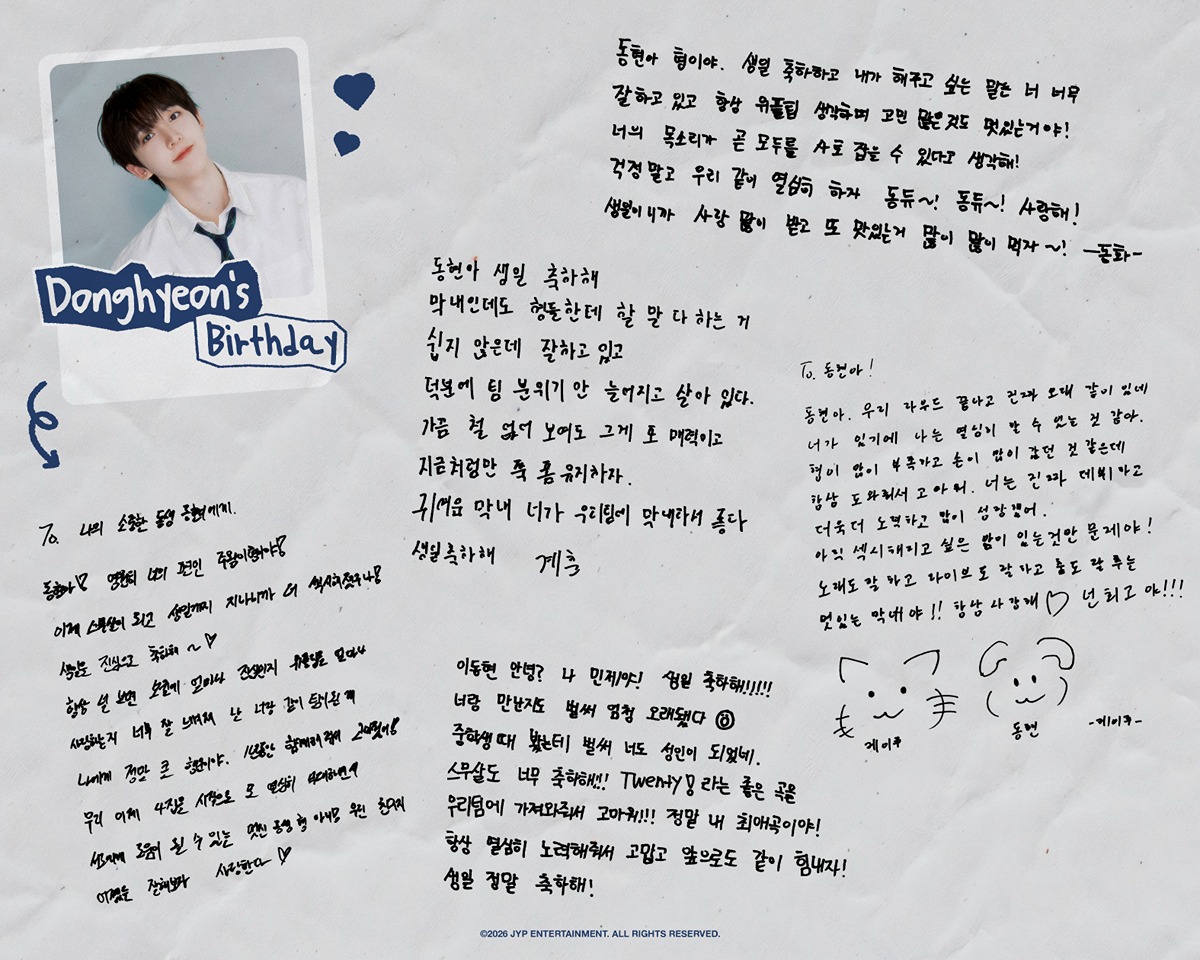 Donghyeon's
Birthday
동현아 형이야. 생일 축하하고 내가 해주고 싶은 말은 너 너무
잘하고 있고 항상 위플립 생각하며 고민 많은것도 멋있는거야!
너의 목소리가 곧 모두를 사로 잡을 수 있다고 생각해!
걱정말고 우리 같이 열심히 하자 동듀~! 동듀~! 사랑해!
생일이니까 사랑 많이 받고 또 맛있는거 많이 많이 먹자~! -동화-
동현아 생일 축하해
막내인데도 형들한테 할 말 다 하는 거
쉽지 않은데 잘하고 있고
덕분에 팀 분위기 안 늘어지고 살아 있다.
가끔 철 없어 보여도 그게 또 매력이고
지금처럼만 쭉 폼 유지하자.
귀여운 막내 너가 우리팀에 막내라서 좋다
생일축하해 계훈
To. 동현아!
동현아. 우리 라우드 끝나고 진짜 오래 같이 있네
너가 있기에 나는 열심히 할 수 있는 것 같아.
형이 많이 부족하고 손이 많이 갔던 것 같은데
항상 도와줘서 고마워. 너는 진짜 데뷔하고
더욱더 노력하고 많이 성장했어.
아직 섹시해지고 싶은 맘이 있는것만 문제야!
노래도 잘 하고 라이브도 잘하고 춤도 잘 추는
멋있는 막내야!! 항상 사랑해♡ 넌 최고야!!!
케이주 동현 -케이주-
To. 나의 소중한 동생 동현이에게.
동현아! 영원히 너의 편인 주왕이형이야!
이제 스무살이 되고 생일까지 지나니까 더 섹시해졌구나!
생일을 진심으로 축하해~♡
항상 널 보면 노래에 얼마나 진심인지 위플립을 얼마나
사랑하는지 너무 잘 느껴져 난 너랑 같이 하는게
나에게 정말 큰 힘이야.
우리 이제 4집을 시작으로 또 열심히
서로에게 도움이 될 수 있는 멋진 동생 형 아니
잘해보자 사랑한다~♡
이동현 안녕? 나 민제야! 생일 축하해!!!!!
너랑 만난지도 벌써 엄청 오래됐다
중학생때 봤는데 벌써 너도 성인이 되었네.
스무살도 너무 축하해!!! Twenty! 라는 좋은 곡을
우리팀에 가져와줘서 고마워!!! 정말 내 최애곡이야!
항상 열심히 노력해줘서 고맙고 앞으로도 같이 힘내자!
생일 정말 축하해!
©2026 JYP ENTERTAINMENT. ALL RIGHTS RESERVED.